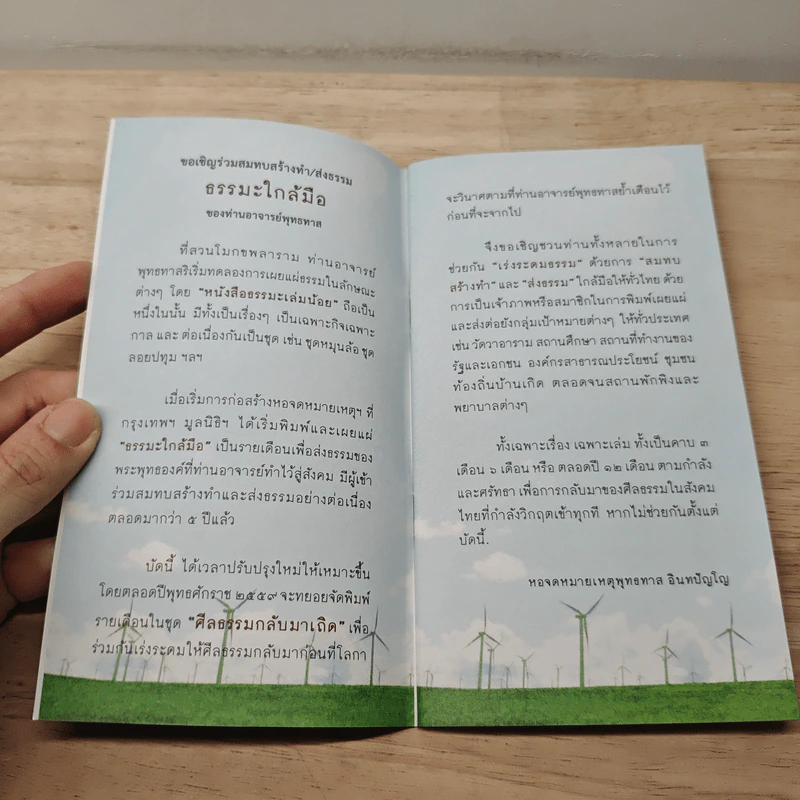 ขอเชิญร่วมสมทบสร้างทำ/ส่งธรรม
ธรรมะใกล้มือ
ของท่านอาจารย์พุทธทาส
ที่สวนโมกขพลาราม ท่านอาจารย์
พุทธทาสริเริ่มทดลองการเผยแผ่ธรรมในลักษณะ
ต่างๆ โดย "หนังสือธรรมะเล่มน้อย" ถือเป็น
หนึ่งในนั้น มีทั้งเป็นเรื่องๆ เป็นเฉพาะกิจเฉพาะ
กาล และ ต่อเนื่องกันเป็นชุด เช่น ชุดหมุนล้อ ชุด
ลอยปทุม ฯลฯ
เมื่อเริ่มการก่อสร้างหอจดหมายเหตุฯ ที่
กรุงเทพฯ มูลนิธิฯ ได้เริ่มพิมพ์และเผยแผ่
"ธรรมะใกล้มือ" เป็นรายเดือนเพื่อส่งธรรมของ
พระพุทธองค์ที่ท่านอาจารย์ทำไว้สู่สังคม มีผู้เข้า
ร่วมสมทบสร้างทำและส่งธรรมอย่างต่อเนื่อง
ตลอดมากว่า ๕ ปีแล้ว
บัดนี้ ได้เวลาปรับปรุงใหม่ให้เหมาะขึ้น
โดยตลอดปีพุทธศักราช ๒๕๕๙ จะทยอยจัดพิมพ์
รายเดือนในชุด "ศีลธรรมกลับมาเถิด" เพื่อ
ร่วมกันเร่งระดมให้ศีลธรรมกลับมาก่อนที่โลกา
จะวินาศตามที่ท่านอาจารย์พุทธทาสย้ำเตือนไว้
ก่อนที่จะจากไป
จึงขอเชิญชวนท่านทั้งหลายในการ
ช่วยกัน "เร่งระดมธรรม" ด้วยการ "สมทบ
สร้างทำ" และ "ส่งธรรม" ใกล้มือให้ทั่วไทย ด้วย
การเป็นเจ้าภาพหรือสมาชิกในการพิมพ์เผยแผ่
และส่งต่อยังกลุ่มเป้าหมายต่างๆ ให้ทั่วประเทศ
เช่น วัดวาอาราม สถานศึกษา สถานที่ทำงานของ
รัฐและเอกชน องค์กรสาธารณประโยชน์ ชุมชน
ท้องถิ่นบ้านเกิด ตลอดจนสถานพักพิงและ
พยาบาลต่างๆ
ทั้งเฉพาะเรื่อง เฉพาะเล่ม ทั้งเป็นคาบ ๓
เดือน ๖ เดือน หรือ ตลอดปี ๑๒ เดือน ตามกำลัง
และศรัทธา เพื่อการกลับมาของศีลธรรมในสังคม
ไทยที่กำลังวิกฤตเข้าทุกที หากไม่ช่วยกันตั้งแต่
บัดนี้.
หอจดหมายเหตุพุทธทาส อินทปัญโญ